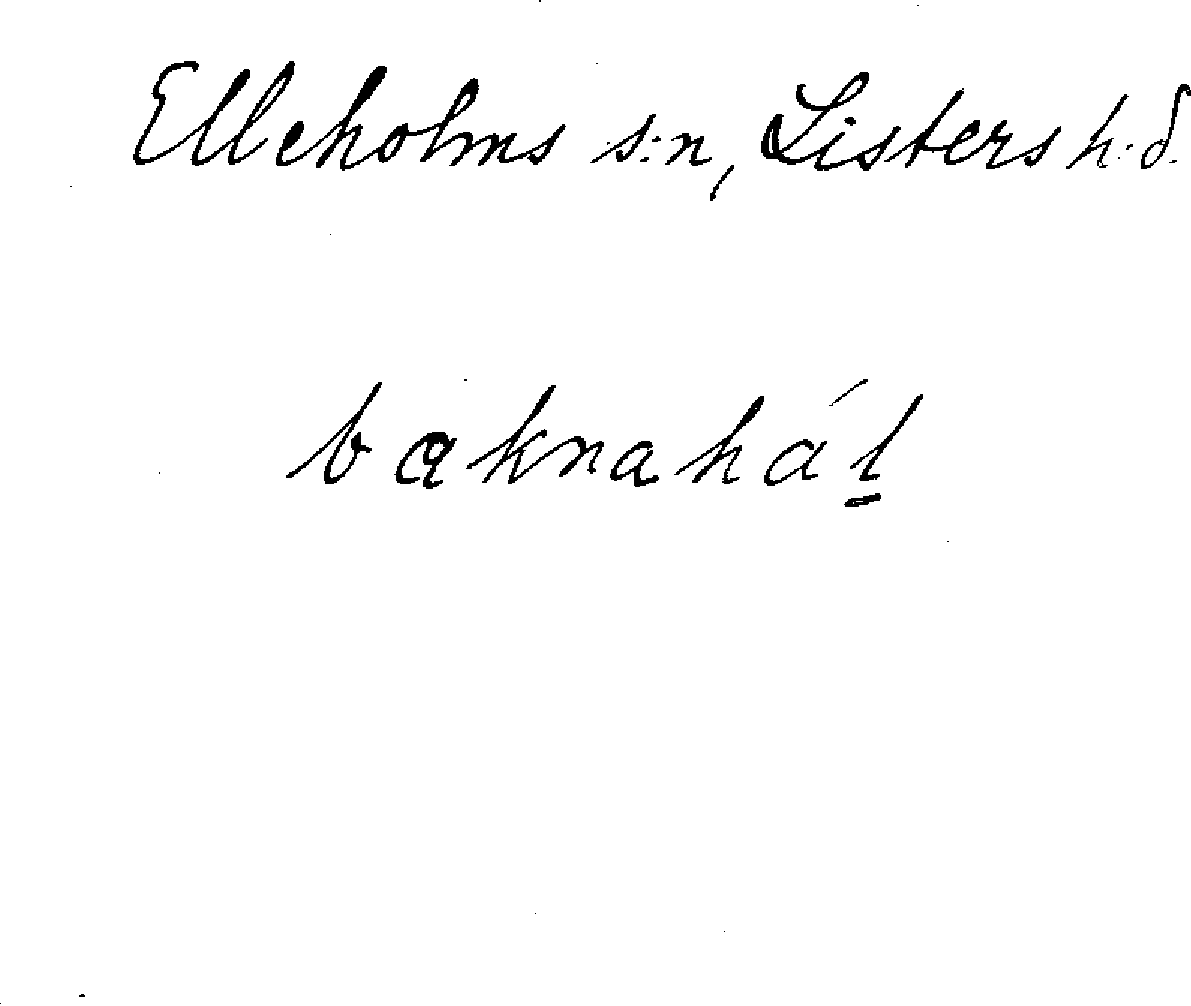 Elleholms s:n, Listers h:d.
baknahál